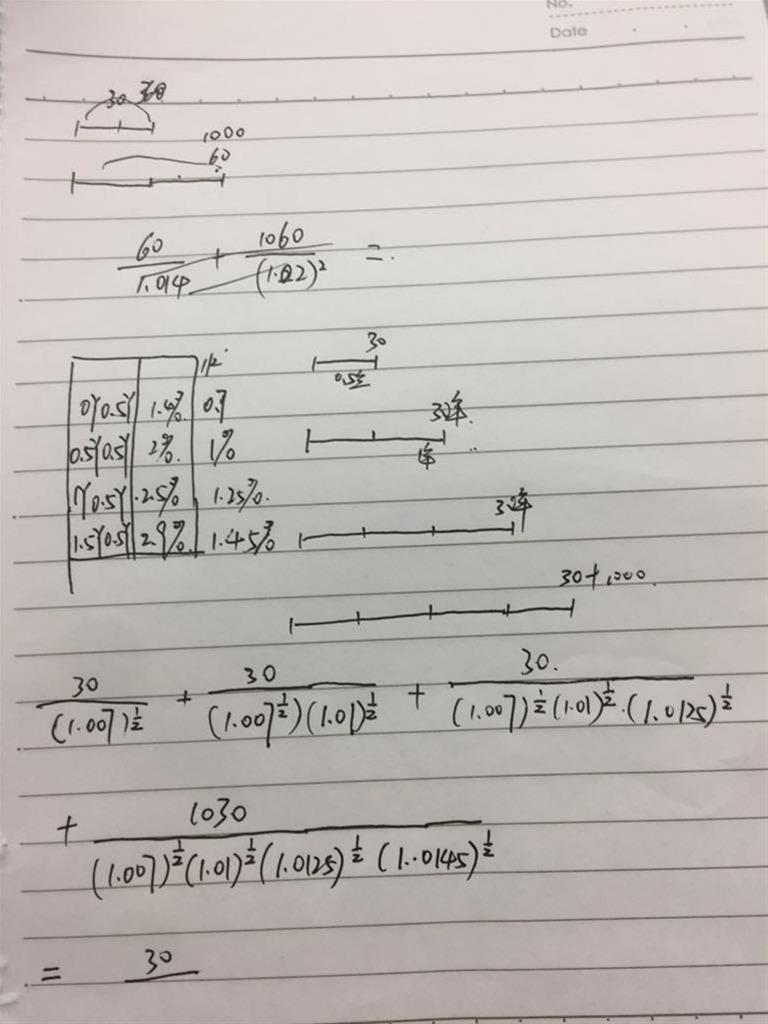 No.
Date
30
1000
60
60/1.014 + 1060/(1.022)² =
30
0.5年
0Y0.5Y 1.4% 0.7
0.5Y0.5Y 2% 1%
1年
1Y0.5Y 2.5% 1.25%
1.5Y0.5Y 2.9% 1.45%
30+1000
30/(1.007)^½ + 30/(1.007^½)(1.01)^½ + 30./(1.007)^½(1.01)^½·(1.0125)^½
+ 1030/(1.007)^½(1.01)^½(1.0125)^½(1.0145)^½
= 30